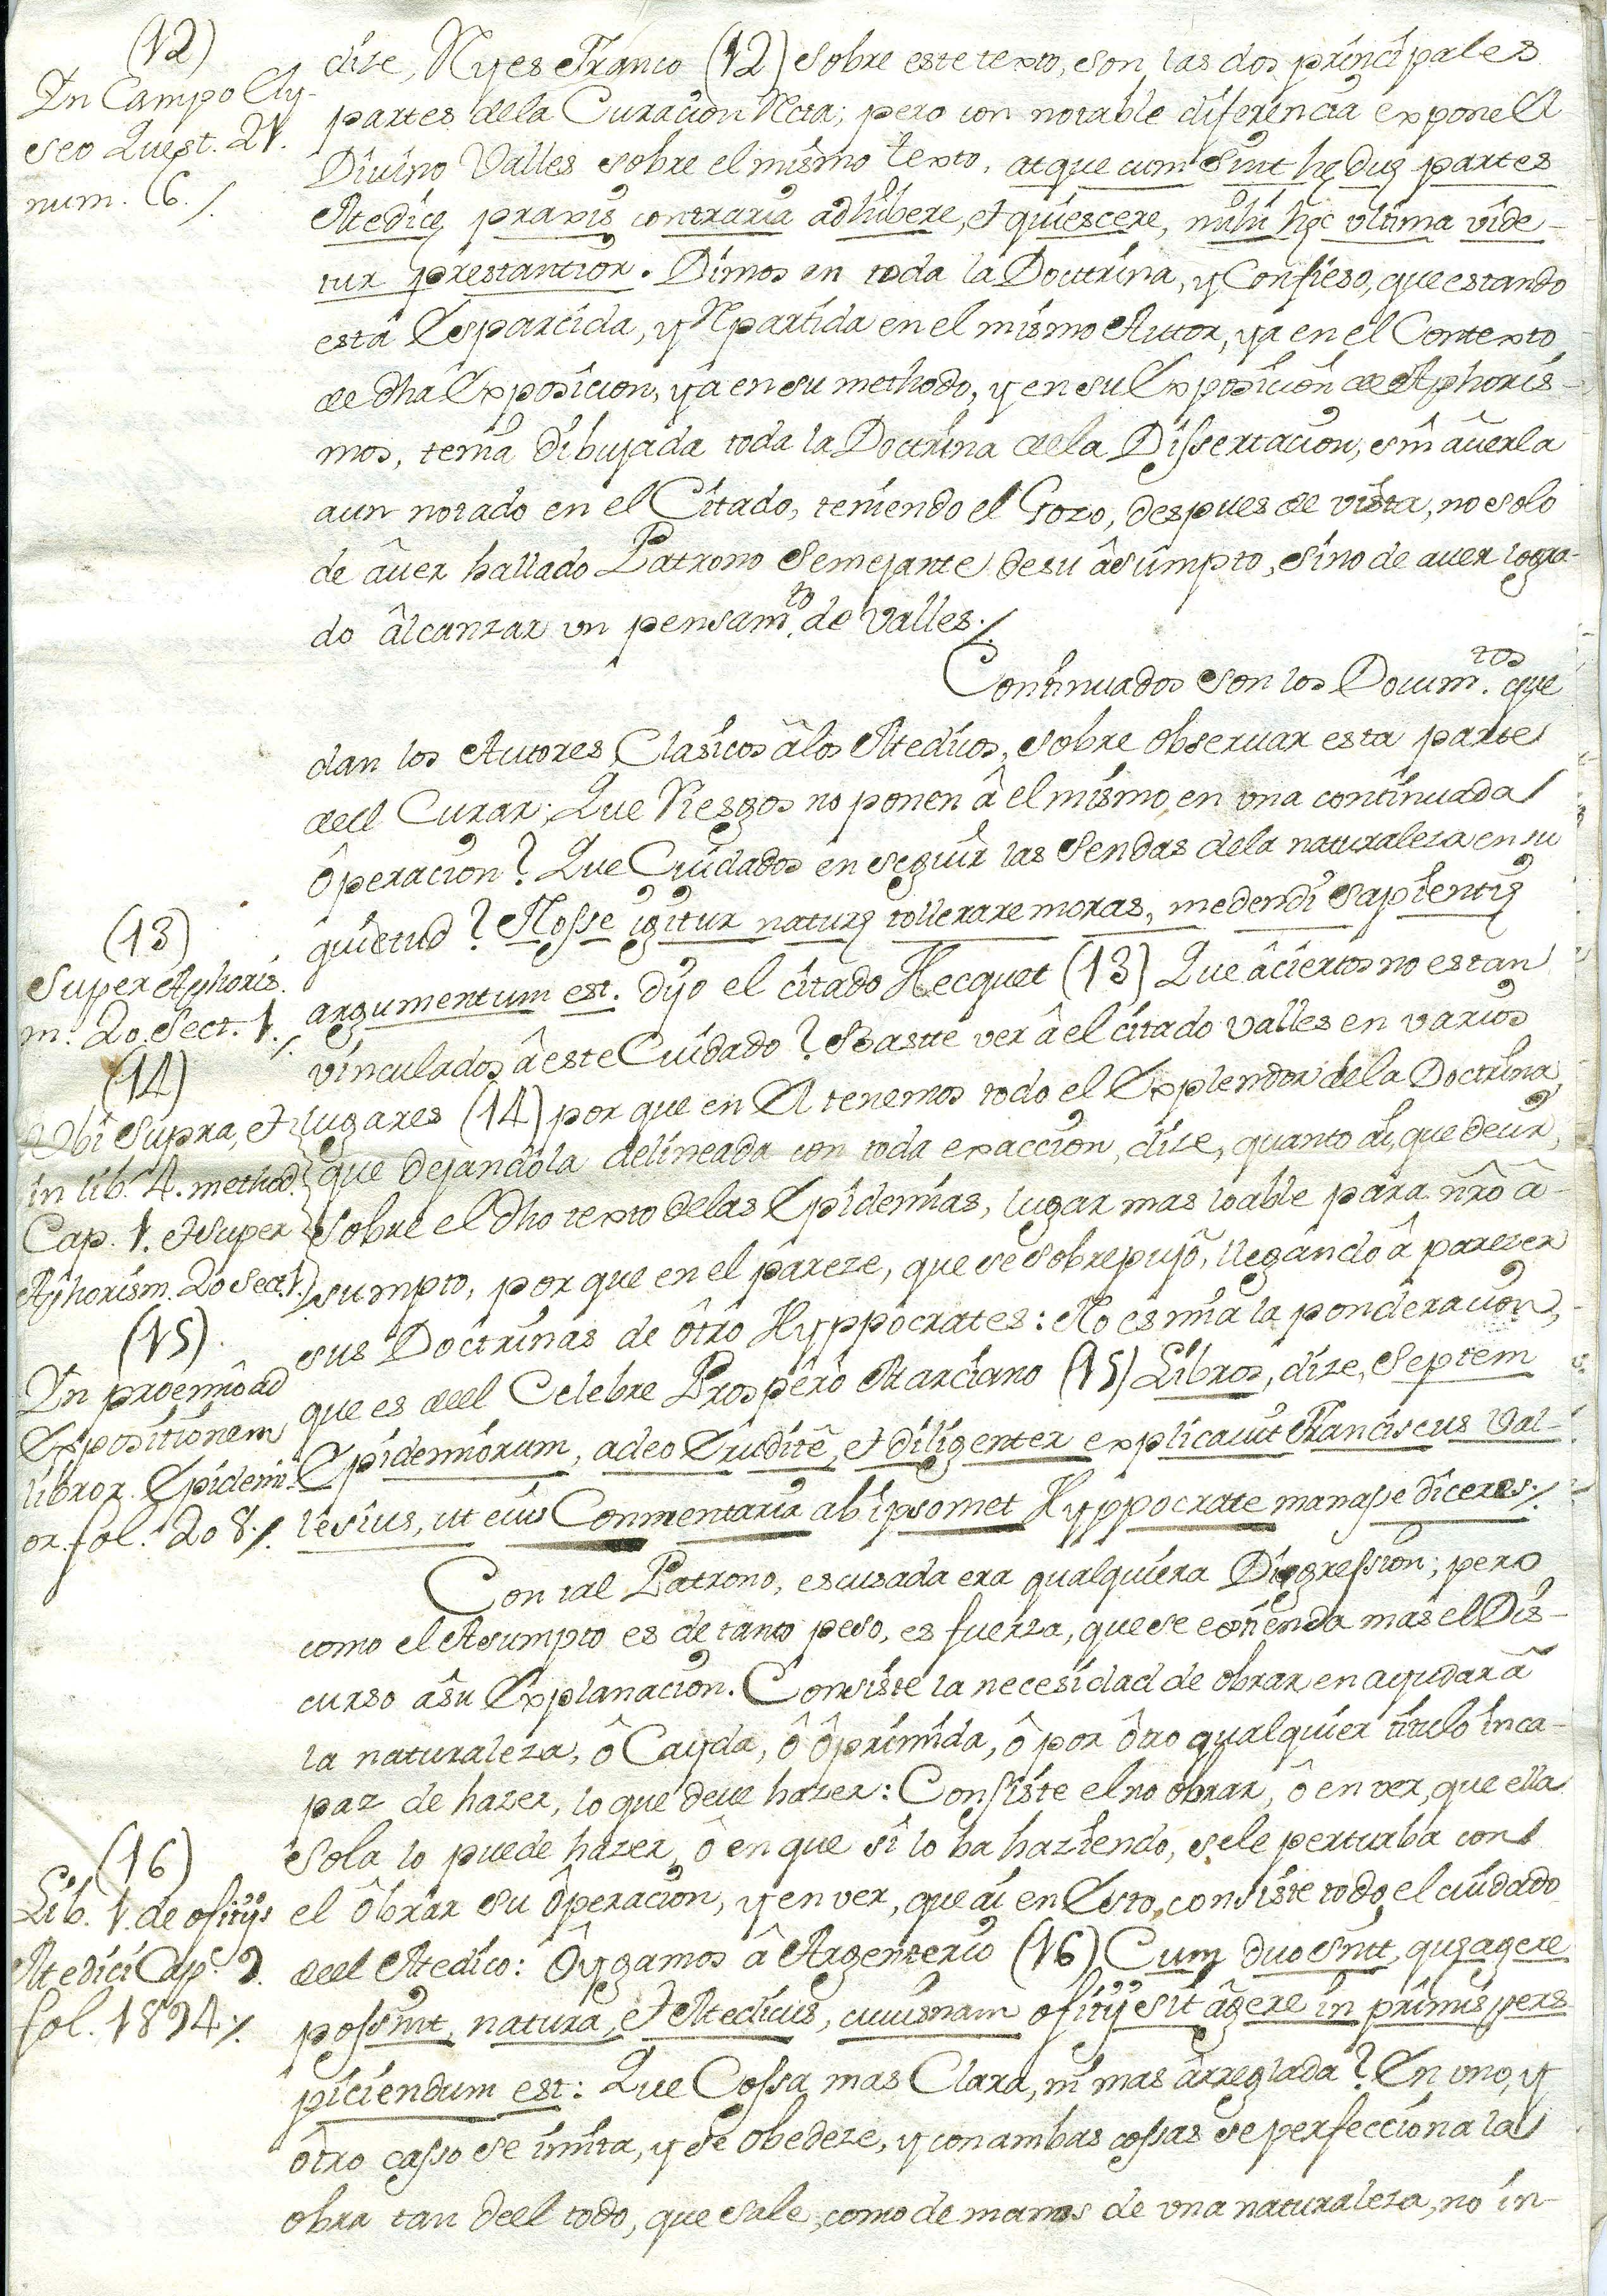 (12)
In Campo Ely-
seo Quest. 21.
num. 6./.
dize, Reyes Franco (12) sobre este texto, son las dos principales
partes dela Curacion Recta; pero con notable diferencia expone el
Divino Valles sobre el mismo texto, atque cum sint hę duę partes
Medicę praxis contraria adhibere, et quiescere, mihi hęc ultima vide-
tur prestantior. Dimos en toda la Doctrina, y Confieso, que estando
esta Esparcida, y Repartida en el mismo Autor, ya en el Contexto
de dha Exposicion, yâ en su methodo, y en su Exposicion de Aphoris-
mos, tenia dibujada toda la Doctrina dela Dissertacion, sin âuerla
aun notado en el Citado, teniendo el Gozo, despues de vista, no solo
de âuer hallado Patrono Semejante de su âsumpto, sino de auer logra-
do âlcanzar un pensam.to de Valles./.
Continuados son los Docum.tos que
dan los Autores Clasicos âlos Medicos, sobre observar esta parte
deel Curar; Que Riesgos no ponen â el mismo en una continuada
Operacion? Que Cuidados en seguir las Sendas dela naturaleza en su
quietud? Nosse igitur naturę tollerare moras, medendi sapientię
(13)
Super Aphoris.
m. 20. Sect. 1./.
argumentum est. dijo el citado Hecquet (13) Que âciertos no estan
vinculados â este Cuidado? Baste ver â el citado Valles en varios
(14)
Ubi Supra, et
in lib. 4. method.
Cap. 1. et super
Aphorism. 20 Sect. 1.
lugares (14) por que en El tenemos todo el Explendor dela Doctrina,
que dejandola delineada con toda exaccion, dize, quanto ai, que decir,
sobre el dho texto delas Epidemias, lugar mas loable para nrô â-
sumpto, por que en el pareze, que se sobrepujô, llegando â parecer
sus Doctrinas de ôtro Hyppocrates: No es mia la ponderacion,
(15)
In proemio ad
Expositionem
libror. Epidemi-
or. fol. 208./.
que es deel Celebre Prospero Marciano (15) Libros, dize, septem
Epidemiorum, adeo Eruditê, et diligenter explicavit Franciscus Val-
lesius, ut eius Commentaria ab ipsomet Hyppocrate manase diceres./.
Con tal Patrono, escusada era qualquiera Digression; pero
como el Asumpto es de tanto peso, es fuerza, que se extienda mas el Dis-
curso âsu Explanacion. Consiste la necesidad de obrar en ayudar â
la naturaleza, ô Cayda, ô ôprimida, ô por ôtro qualquier titulo inca-
paz de hazer, lo que deve hazer: Consiste el no obrar, ô en ver, que ella
Sola lo puede hazer, ô en que si lo ba haziendo, sele perturba con
(16)
Lib. 1. de ofitijs
Medici Cap. 2.
fol. 1894./.
el ôbrar su ôperacion, y en ver, que ai en Esto, consiste todo el cuidado
deel Medico: Ôygamos â Argenterio (16) Cum duo sint, quę agere
possint, natura, et Medicus, cuiusnam ofitij sit âgere in primis pers-
piciendum est: Que Cossa mas Clara, ni mas ârreglada? En uno, y
ôtro casso se imita, y se obedeze, y con ambas cossas se perfecciona la
obra tan deel todo, que sale, como de manos de una naturaleza, no in-